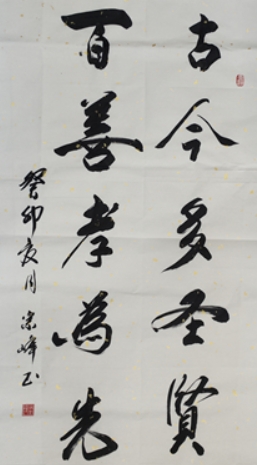 古今多圣贤
百善孝为先
癸卯夏月宗峰书